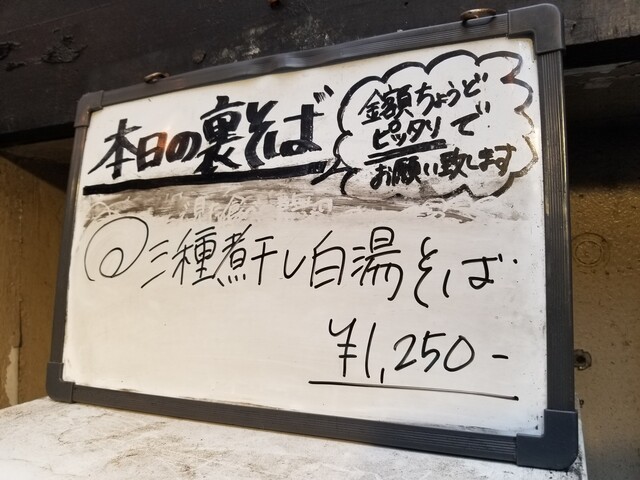 本日の裏そば
金額ちょうど
ピッタリで
お願い致します
三種煮干し白湯そば
¥1,250-